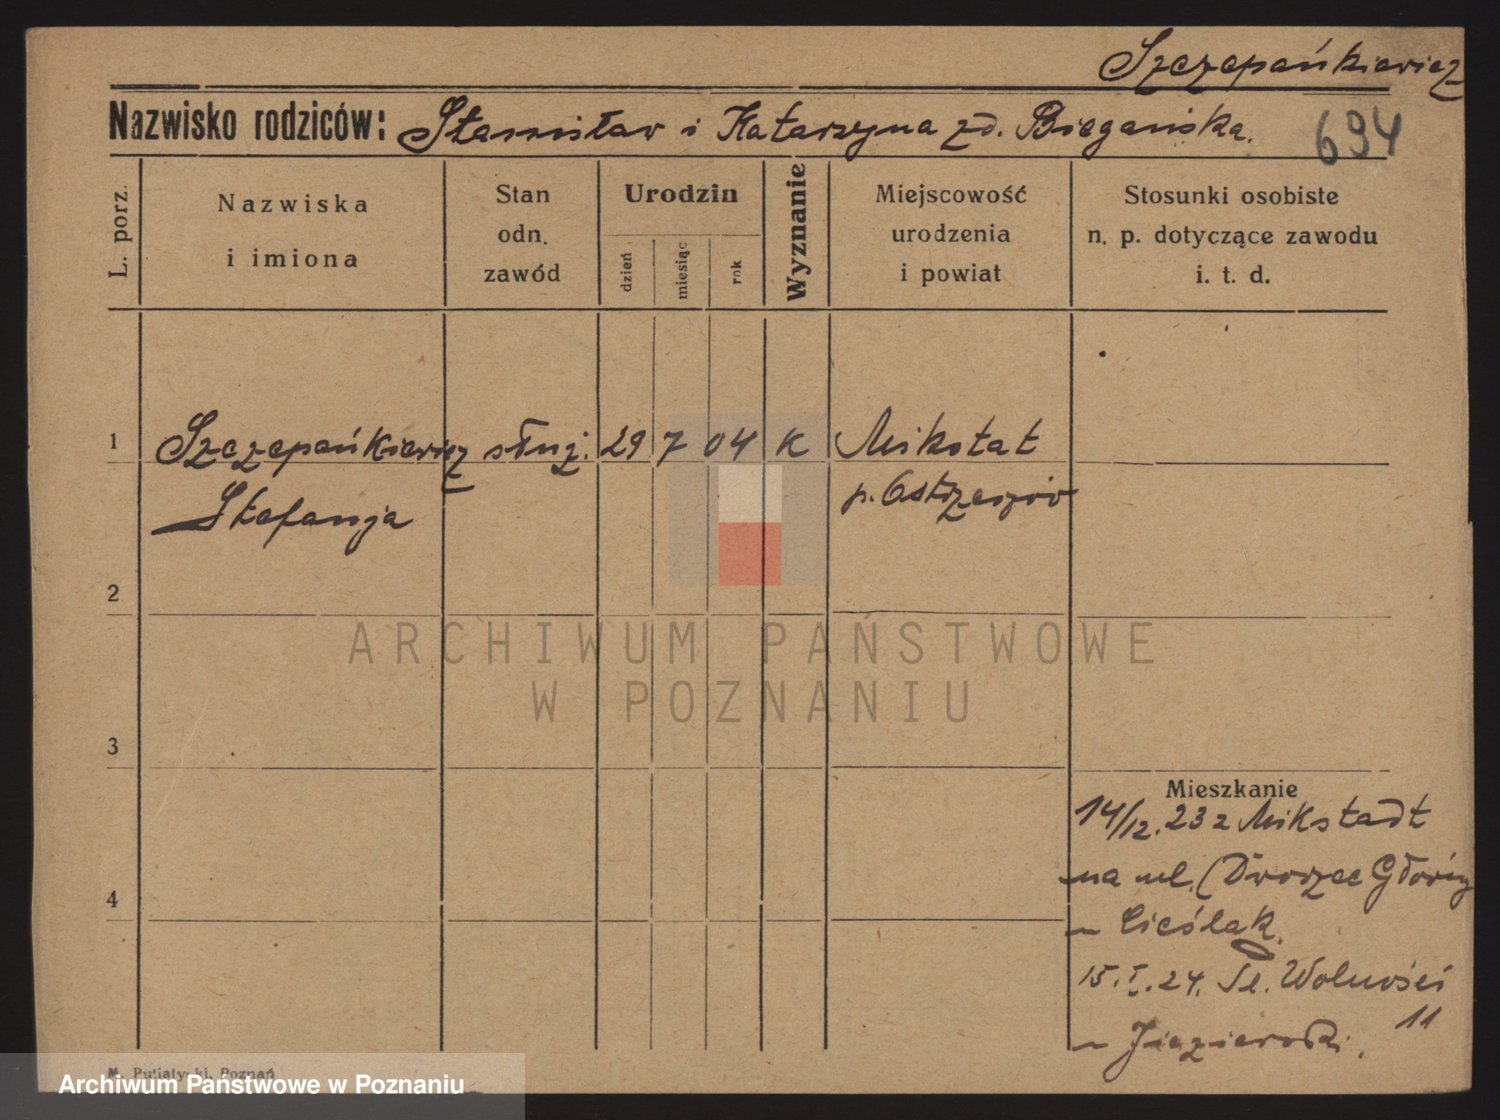 Szczepańkiewicz
Nazwisko rodziców: Stanisław i Katarzyna zd. Biegańska.
694
L. porz.
Nazwiska
i imiona
Stan
odn.
zawód
Urodzin
dzień
miesiąc
rok
Wyznanie
Miejscowość
urodzenia
i powiat
Stosunki osobiste
n. p. dotyczące zawodu
i. t. d.
1 Szczepańkiewicz służ. 29 7 04 K Mikstat
Stefanja p. Ostrzeszów
2
ARCHIWUM PAŃSTWOWE
W POZNANIU
3
Mieszkanie
14/12. 23 z Mikstadt
4
na ul. (Dworzec Główny
~ Cieślak.
15.I.24. Pl. Wolności
11
~ Jezierski.
M. Putiatycki, Poznań
Archiwum Państwowe w Poznaniu